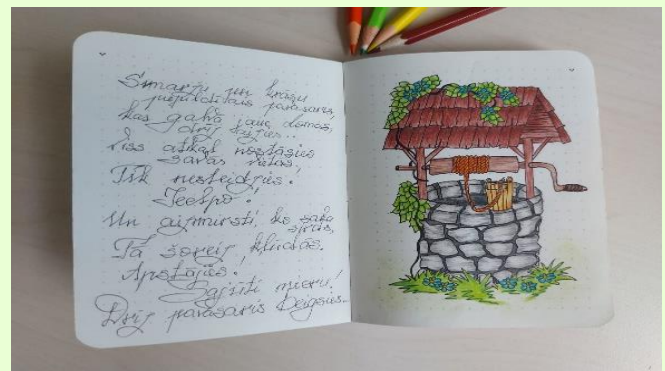 Smaržu un krāsu
piepildītais pavasaris,
kas galvā jauc domas,
drīz
Viss atkal nostāsies
savās vietās.
Tik nesteidzies!
Ieelpo!
Un aizmirsti, ko saka
sirds,
Tā šoreiz kļūdās.
Apstājies!
Sajūti mieru!
Drīz pavasaris beigsies..